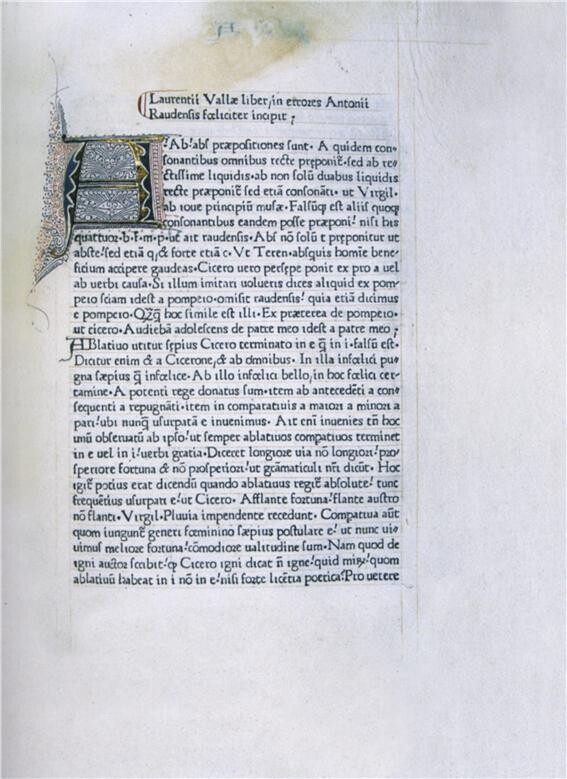 Laurentii Vallæ liber, in errores Antonii
Raudensis fœliciter incipit;
A Ab! abs præpositiones sunt. A quidem con-
sonantibus omnibus recte pręponiť. sed ab re-
ctissime liquidis. ab non solū duabus liquidis
recte præponiť sed etiā consonāti. ut Virgil.
ab ioue principiū musæ. Falsūq̃ est aliis quoq̃
consonantibus eandem posse præponi! nisi his
quattuor. b. f. m. p. ut ait raudensis. Abs nō solū t pręponitur ut
abste! sed etiā q, & forte etiā c. Vt Teren. absquis homīe bene-
ficium accipere gaudeas. Cicero uero persępe ponit ex pro a uel
ab uerbi causa. Si illum imitari uolueris dices aliquid ex pom-
peio sciam idest a pompeio. omisit raudensis! quia etiā dicimus
e pompeio. hoc simile est illi. Ex præterea de pompeio.
ut cicero. Audiebā adolescens de patre meo idest a patre meo;
ABlatiuo utitur sępius Cicero terminato in e q̃ in i. falsū est.
Dicitur enim & a Cicerone, & ab omnibus. In illa infœlici pu
gna sæpius q̃ infœlice. Ab illo infœlici bello, in hoc fœlici cer-
tamine. A potenti rege donatus sum. item ab antecedēti a con-
sequenti a repugnāti. item in comparatiuis a maiori a minori a
pari! ubi nunq̃ usurpatā e inuenimus. Ait enī inuenies tñ hoc
unū obseruatū ab ipso! ut semper ablatiuos compatiuos terminet
in e uel in i! uerbi gratia. Diceret longiore uia nō longiori! pro/
speriore fortuna & nō prosperiori! ut grāmaticuli nr̄i dicūt. Hoc
igiť potius erat dicendū quando ablatiuus regiť absolute! tunc
frequētius usurpari e! ut Cicero. Afflante fortuna! flante austro
nō flanti. Virgil. Pluuia impendente recedunt. Compatiua aūt
quom iungunť generi fœminino sæpius postulare e! ut nunc ui-
uimus meliore fortuna! cōmodiore ualitudine sum. Nam quod de
igni auctor scribit! Cicero igni dicat n̄ igne! quid miʀ! quom
ablatiuū habeat in i nō in e! nisi forte licētia poetica! Pro uetere